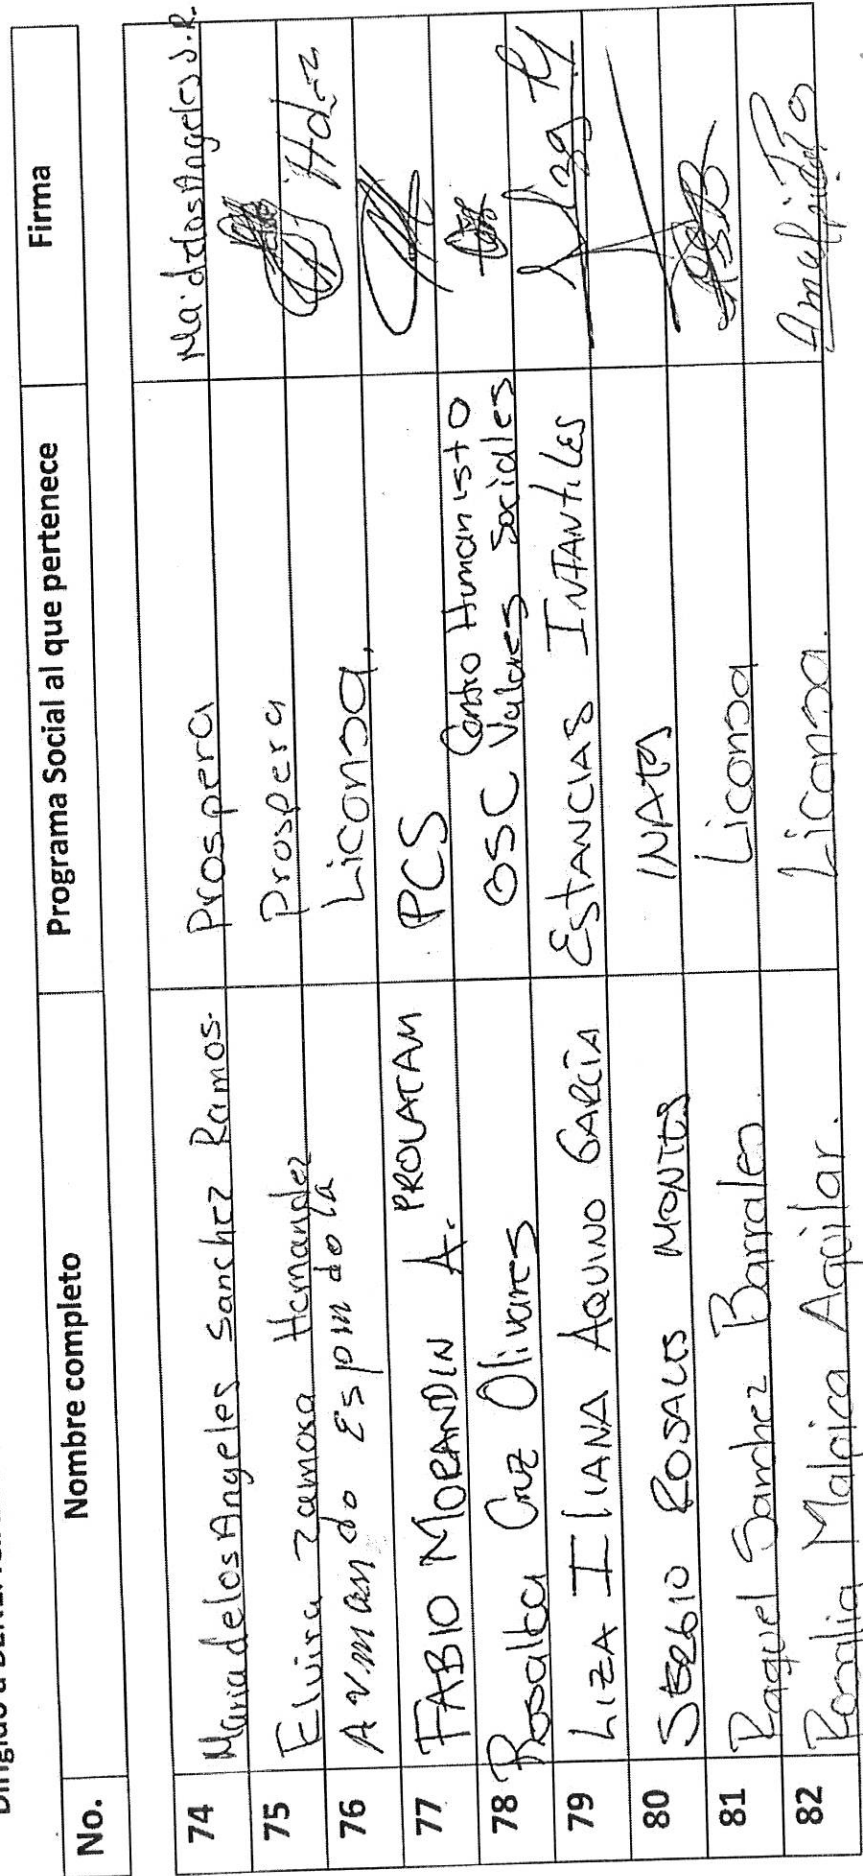 Dirigido a
No. Nombre completo Programa Social al que pertenece Firma
74 Maria de los Angeles Sanchez Ramos. Prospera Ma. de los Angeles S.R.
75 Elvira Zamora Hernandez Prospera Hdez
76 Armando Espindola Liconsa.
77 FABIO MORANDIN A. PROLATAM PCS
78 Rosalba Cruz Olivares OSC Centro Humanisto Valores Sociales
79 LIZA ILIANA AQUINO GARCÍA ESTANCIAS INFANTILES
80 SERGIO ROSALES MONTES
81 Raquel Sanchez Barrales. Liconsa
82 Rosalia Malpica Aguilar. Liconsa.